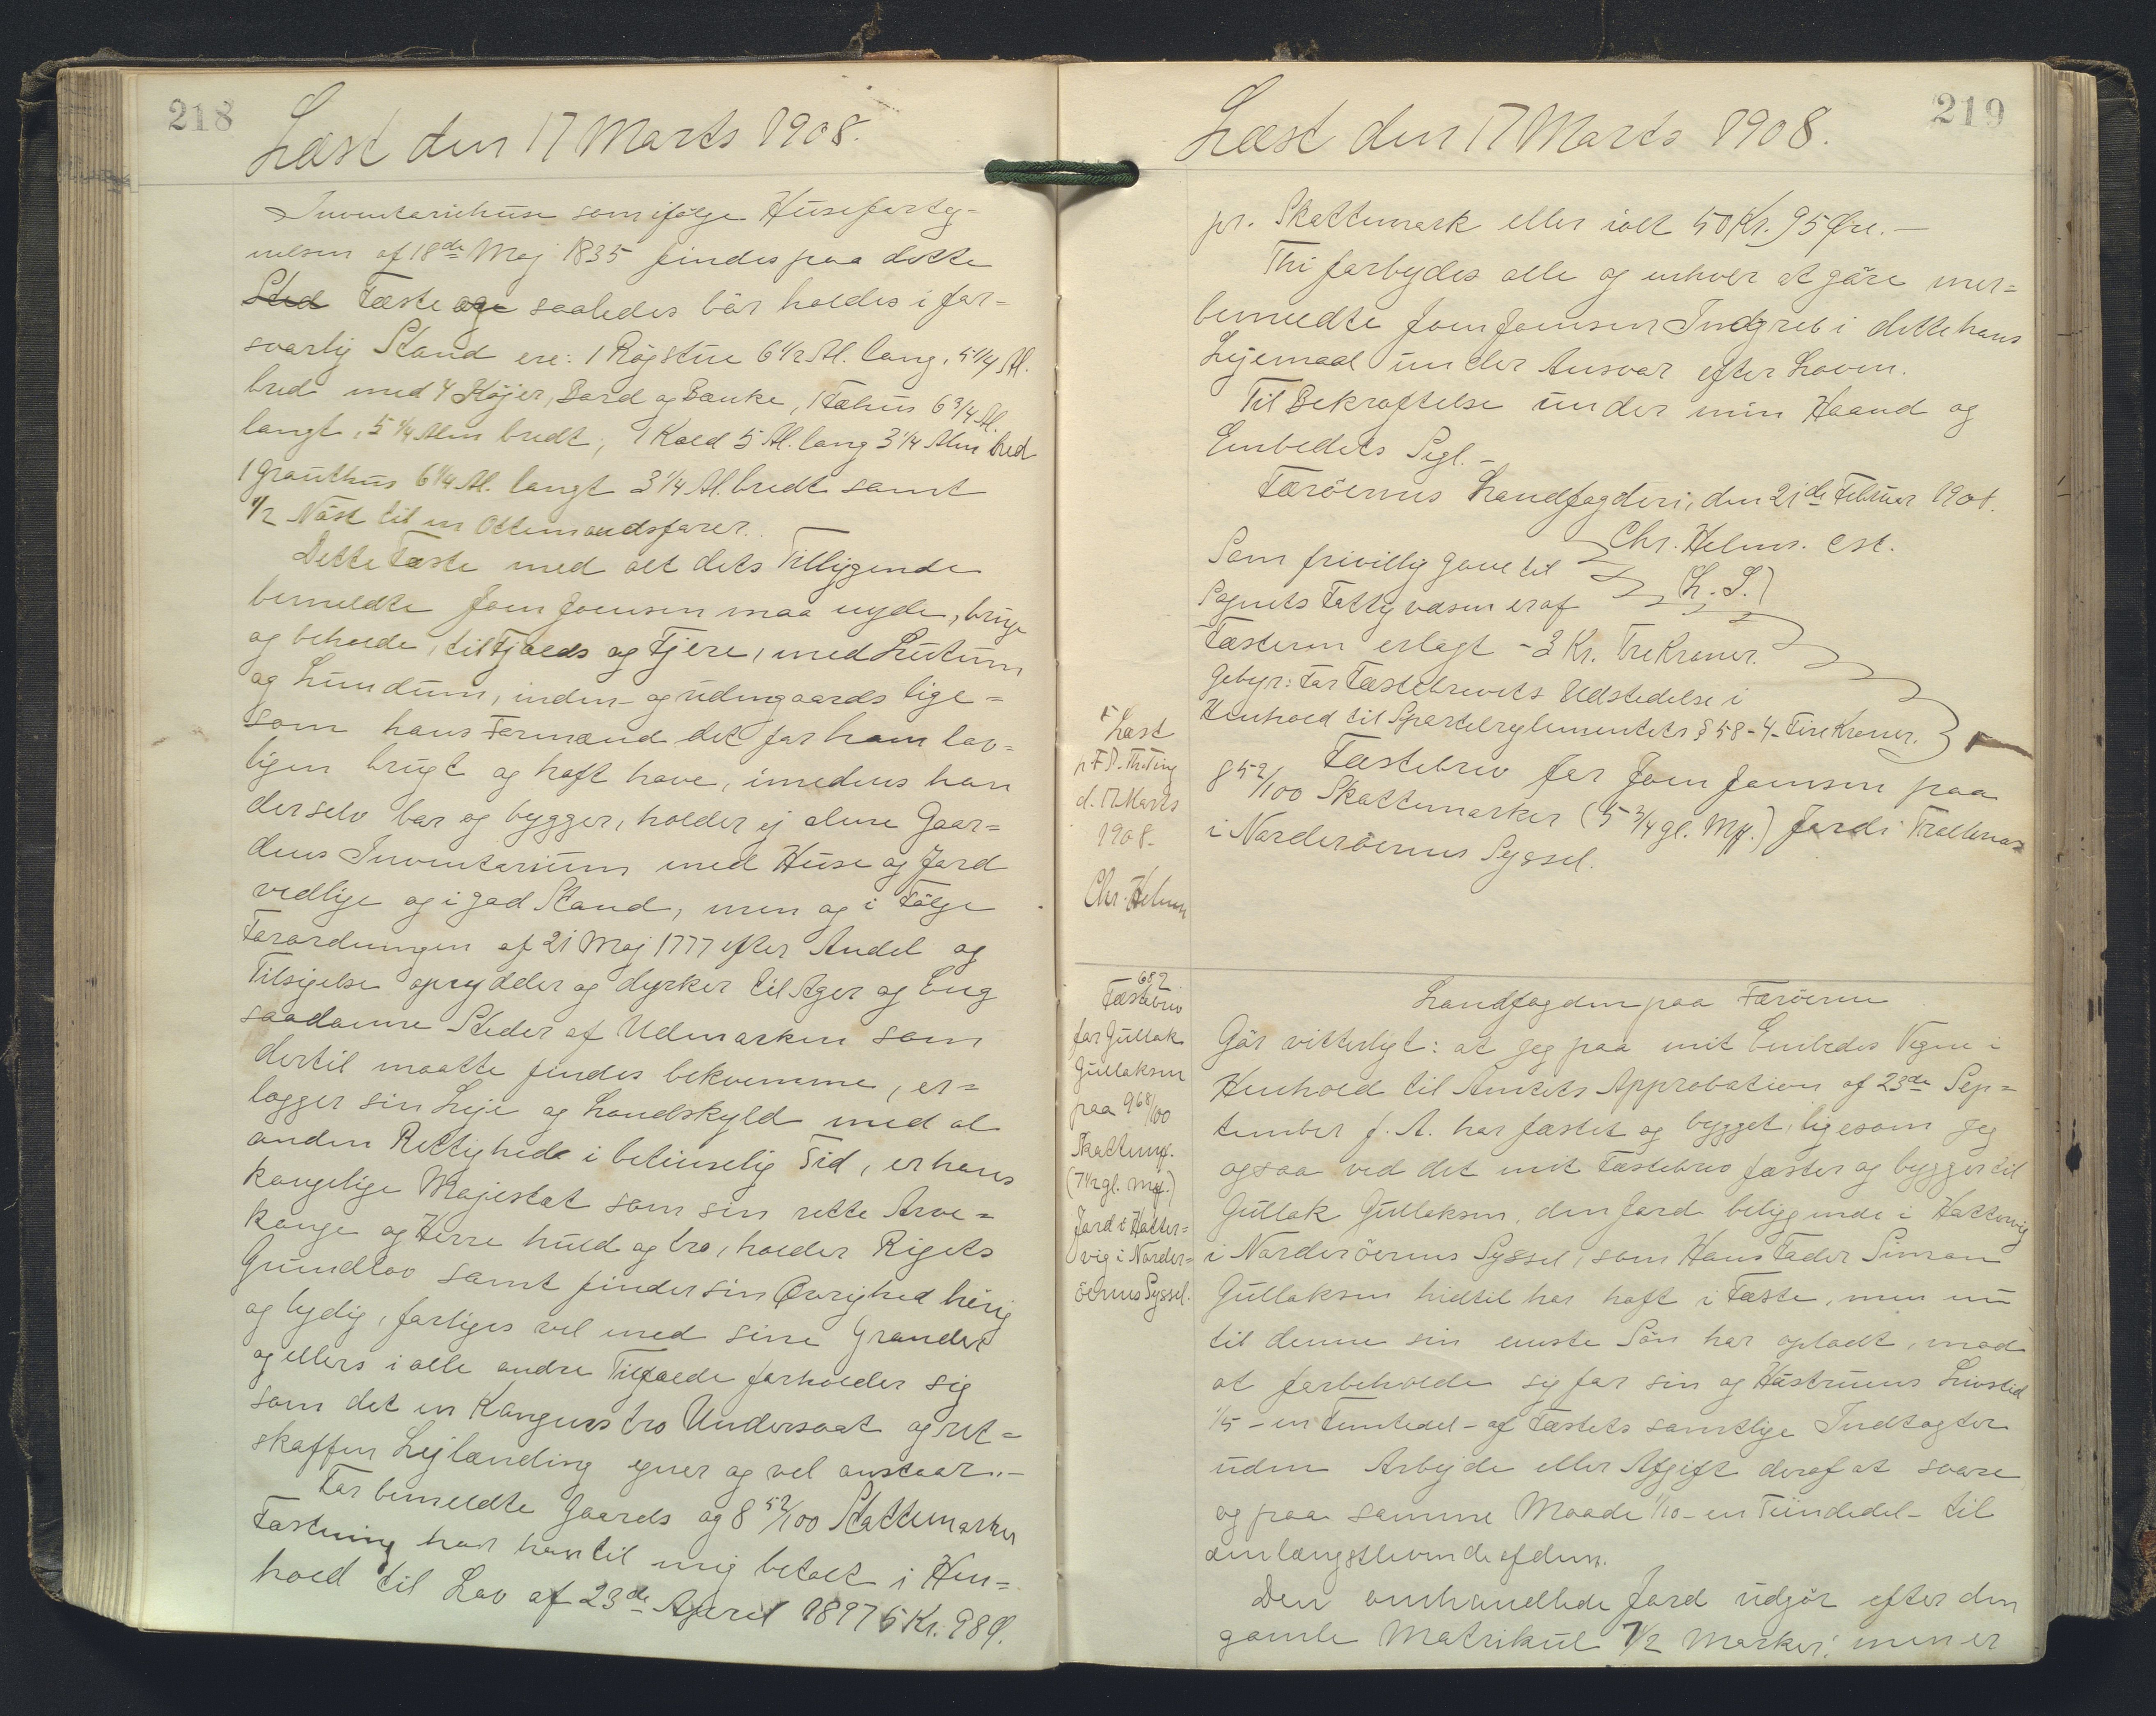 218
Læst den 17 Marts 1908.
Inventariehuse som ifølge Huseforteg=
nelsen af 18de Maj 1835 findes paa dette
Sted Fæste og saaledes bör holdes i for=
svarlig Stand ere: 1 Røgstue 6 1/2 Al. lang, 5 1/4 Al.
bred med 4 Köjer, Bord og Bænke, 1 Fæhus 6 3/4 Al.
langt, 5 1/4 Alen bredt, 1 Kold 5 Al. lang 3 1/4 Alen bred
1 Grauthus 6 1/4 Al. langt 3 1/4 Al. bredt samt
1/2 Nöst til en Ottemandsfarer.
Dette Fæste med alt dets Tilliggende
bemeldte Joen Joensen maa nyde, bruge
og beholde, til Fjælds og Fjere, med Lutum
og Lundum, inden- og udengaards lige=
som hans Formænd det før ham lov=
ligen brugt og haft have, imedens han
derselv bor og bygger, holder ej alene Gaar=
dens Inventarium med Huse og Jord
vedlige og i god Stand, men og i Fölge
Forordningen af 21 Maj 1777 efter Andel og
Tilsigelse oprydder og dyrker til Ager og Eng
saadanne Steder af Udmarken som
dertil maatte findes bekvemme, er=
lægger sin Leje og Landskyld med al
anden Rettighed i betimelig Tid, er hans
kongelige Majestæt som sin rette Arve=
konge og Herre huld og tro, holder Rigets
Grundlov samt finder sin Øvrighed hörig
og lydig, forliges vel med sine Grander
og ellers i alle andre Tilfælde forholder sig
som det en Kongens tro Undersaat og ret=
skaffen Lejlænding egner og vel anstaar.-
For bemeldte Gaards og 8 52/100 Skattemarker
Fæstning har han til mig betalt i Hen=
hold til Lov af 23de April 1897 5 Kr. 98 Ø.
219
Læst den 17 Marts 1908.
pr. Skattemark eller ialt 50 Kr. 95 Øre.-
Thi forbydes alle og enhver at göre mer=
bemeldte Joen Joensen Indgreb i dette hans
Lejemaal under Ansvar efter Loven.
Til Bekræftelse under min Haand og
Embedets Segl.-
Færöernes Landfogderi, den 21de Februar 1908.
Chr. Helms. cst.
(L. S.)
Som frivillig Gave til
Sognets Fattigvæsen er af
Fæsteren erlagt - 3 Kr. Tre Kroner.
Gebyr: For Fæstebrevets Udstedelse i
Henhold til Sportelreglementets § 58 - 4 - Fire Kroner.
Fæstebrev for Joen Joensen paa
8 52/100 Skattemarker (5 3/4 gl. Mk.) Jord i Trøllenæs
i Norderöernes Syssel.
Læst
d. 17 Marts
1908.
Chr. Helms
682
Fæstebrev
for Gullak
Gullaksen
paa 9 68/100
Skattemk.
(7 1/2 gl. Mk.)
Jord i Hatter=
vig i Norder=
öernes Syssel.
Landfogden paa Færöerne
Gör vitterligt: at jeg paa mit Embedes Vegne i
Henhold til Amtets Approbation af 23de Sep=
tember f. A. har fæstet og bygget, ligesom jeg
ogsaa ved det mit Fæstebrev fæster og bygger til
Gullak Gullaksen, den Jord beliggende i Hattervig
i Norderöernes Syssel, som Hans Fader Simon
Gullaksen hidtil har haft i Fæste, men nu
til denne sin eneste Sön har opladt, mod
at forbeholde sig for sin og Hustruens Livstid
1/5 - en Femtedel - af Fæstets samtlige Indtægter
uden Arbejde eller Afgift deraf at svare
og paa samme Maade 1/10 - en Tiendedel - til
den længstlevende af dem.
Den omhandlede Jord udgör efter den
gamle Matrikul 7 1/2 Marker, men er